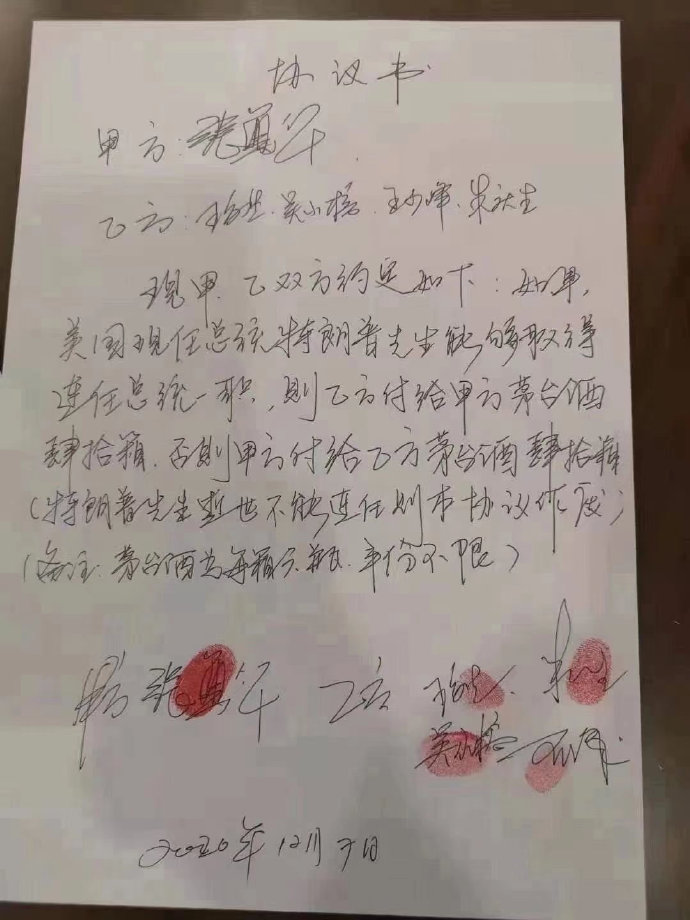 协议书
甲方:张
乙方:吴小榕.王少峰.朱秋生
现甲.乙双方约定如下:如果,
美国现任总统特朗普先生能够取得
连任总统一职,则乙方付给甲方茅台酒
肆拾箱.否则甲方付给乙方茅台酒肆拾箱
(特朗普先生逝世不能连任则本协议作废)
(备注:茅台酒为每箱六瓶.年份不限)
甲方 张 乙方
吴小榕
2020年12月7日